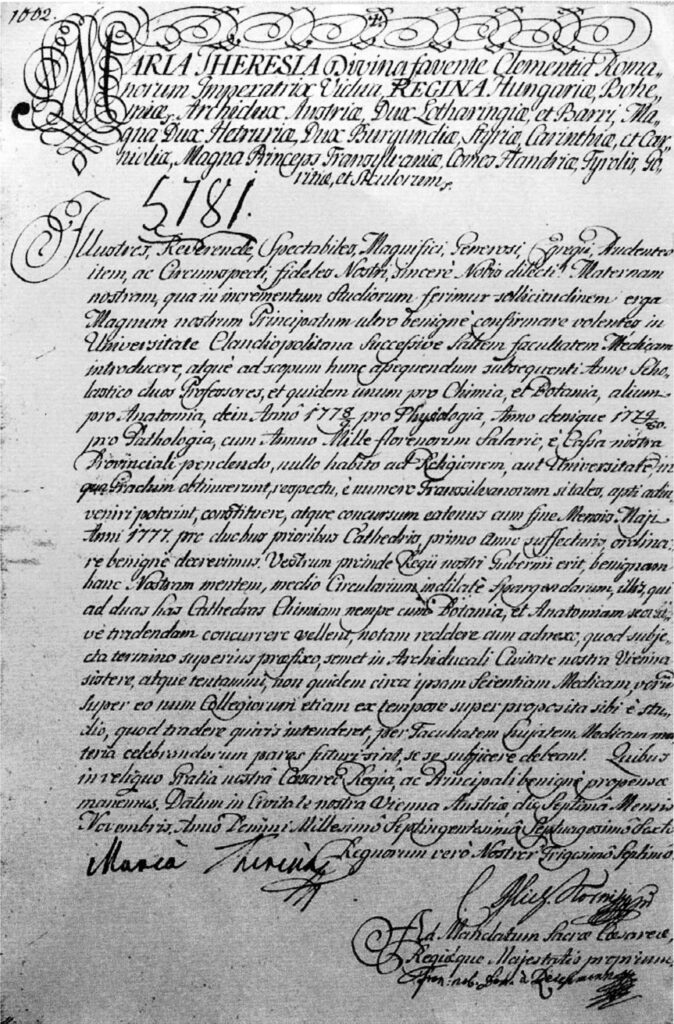 1002.
MARIA THERESIA Divinâ favente Clementiâ Roma-
norum Imperatrix Vidua, REGINA Hungariæ, Bohe-
miæ, Archidux Austriæ, Dux Lotharingiæ, et Barri, Ma-
gna Dux Hetruriæ, Dux Burgundiæ, Styriæ, Carinthiæ, et Car-
nioliæ, Magna Princeps Transylvaniæ, Comes Flandriæ, Tyrolis, Go-
ritiæ, et Siculorum.
5781.
Illustres, Reverende, Spectabiles, Magnifici, Generosi, Egregii, Prudentes
item, ac Circumspecti, fideles Nostri, sincere Nobis dilecti! Maternam
nostram, qua in incrementum Studiorum ferimur sollicitudinem erga
Magnum nostrum Principatum ultro benignè confirmare volentes in
Universitate Claudiopolitana Successive Saltem facultatem Medicam
introducere, atquè ad scopum hunc assequendum subsequenti Anno Scho-
lastico duos Professores, et quidem unum pro Chimia, et Botania, alium
pro Anatomia, dein Annô 1778/9 pro Physiologia, Anno denique
pro Pathologia, cum Annuo Mille florenorum Salario, è Cassa nostra
Provinciali pendendo, nullo habito ad Religionem, aut Universitatē, in
qua Gradum obtinuerunt, respectu, è numero Transsilvanorum si tales, apti adin-
veniri poterint, constituere, atque concursum eatenus cum fine Mensis Maji
Anni 1777. pro duobus prioribus Cathedris, primo Anno suffecturis, ordina-
re benignè decrevimus. Vestrum proinde Regii nostri Gubernii erit, benignam
hanc Nostram mentem, medio Circularium indilatè Spargendarum, illis, qui
ad duas has Cathedras Chimiam nempe cum Botania, et Anatomiam
vè tradendam concurrere vellent, notam reddere cum adnexo, quod subje-
cta termino superius præfixo, semet in Archiducali Civitate nostra Vienna
sistere, atque tentamini, non quidem circa ipsam Scientiam Medicam, verū
super eo num Collegiorum etiam ex tempore super proposita sibi è stu-
dio, quod tradere quivis intenderet, per Facultatem hujatem Medicam ma-
teria celebrandorum pares futuri sint, se se subjicere debeant. Quibus
in reliquo Gratia nostra Cæsareo Regia, ac Principali benignè propensæ
manemus. Datum in Civitate nostra Vienna Austriæ die Septima Mensis
Novembris, Anno Domini Millesimô Septingentesimô Septuagesimô Sexti
Regnorum verô Nostror Trigesimô Septimo.
Maria Theresia
Ad Mandatum Sacræ Cæsareæ,
Regiæque Majestatis proprium.